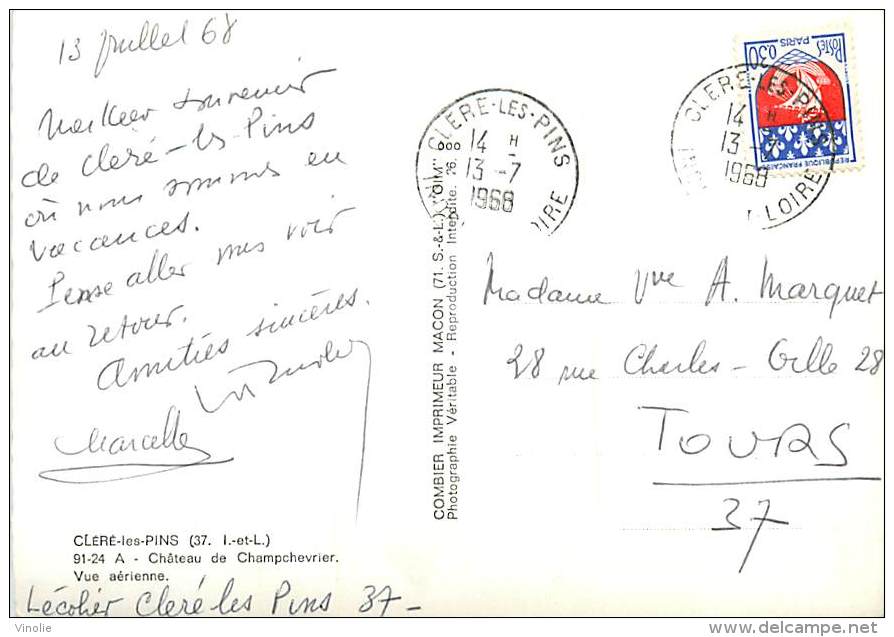 13 juillet 68
Meilleur souvenir
de Cleré-les Pins
où nous sommes en
vacances.
Pense aller vous voir
au retour.
Amitiés sincères.
Marcelle
CLÉRÉ-les-PINS (37. I.-et-L.)
91-24 A - Château de Champchevrier.
Vue aérienne.
Lécolier Cleré les Pins 37-
COMBIER IMPRIMEUR MACON (71. S.-&-L.) "CIM"
Photographie Véritable - Reproduction Interdite. 26.
CLERE-LES-PINS
14 H
13-7
1968
CLERE-LES-PINS
14 H
13-7
1968
LOIRE
POSTES
0,30
PARIS
REPUBLIQUE FRANÇAISE
Madame Vve A. Marquet
28 rue Charles-Gille 28
TOURS
37
Vinolie - www.delcampe.net